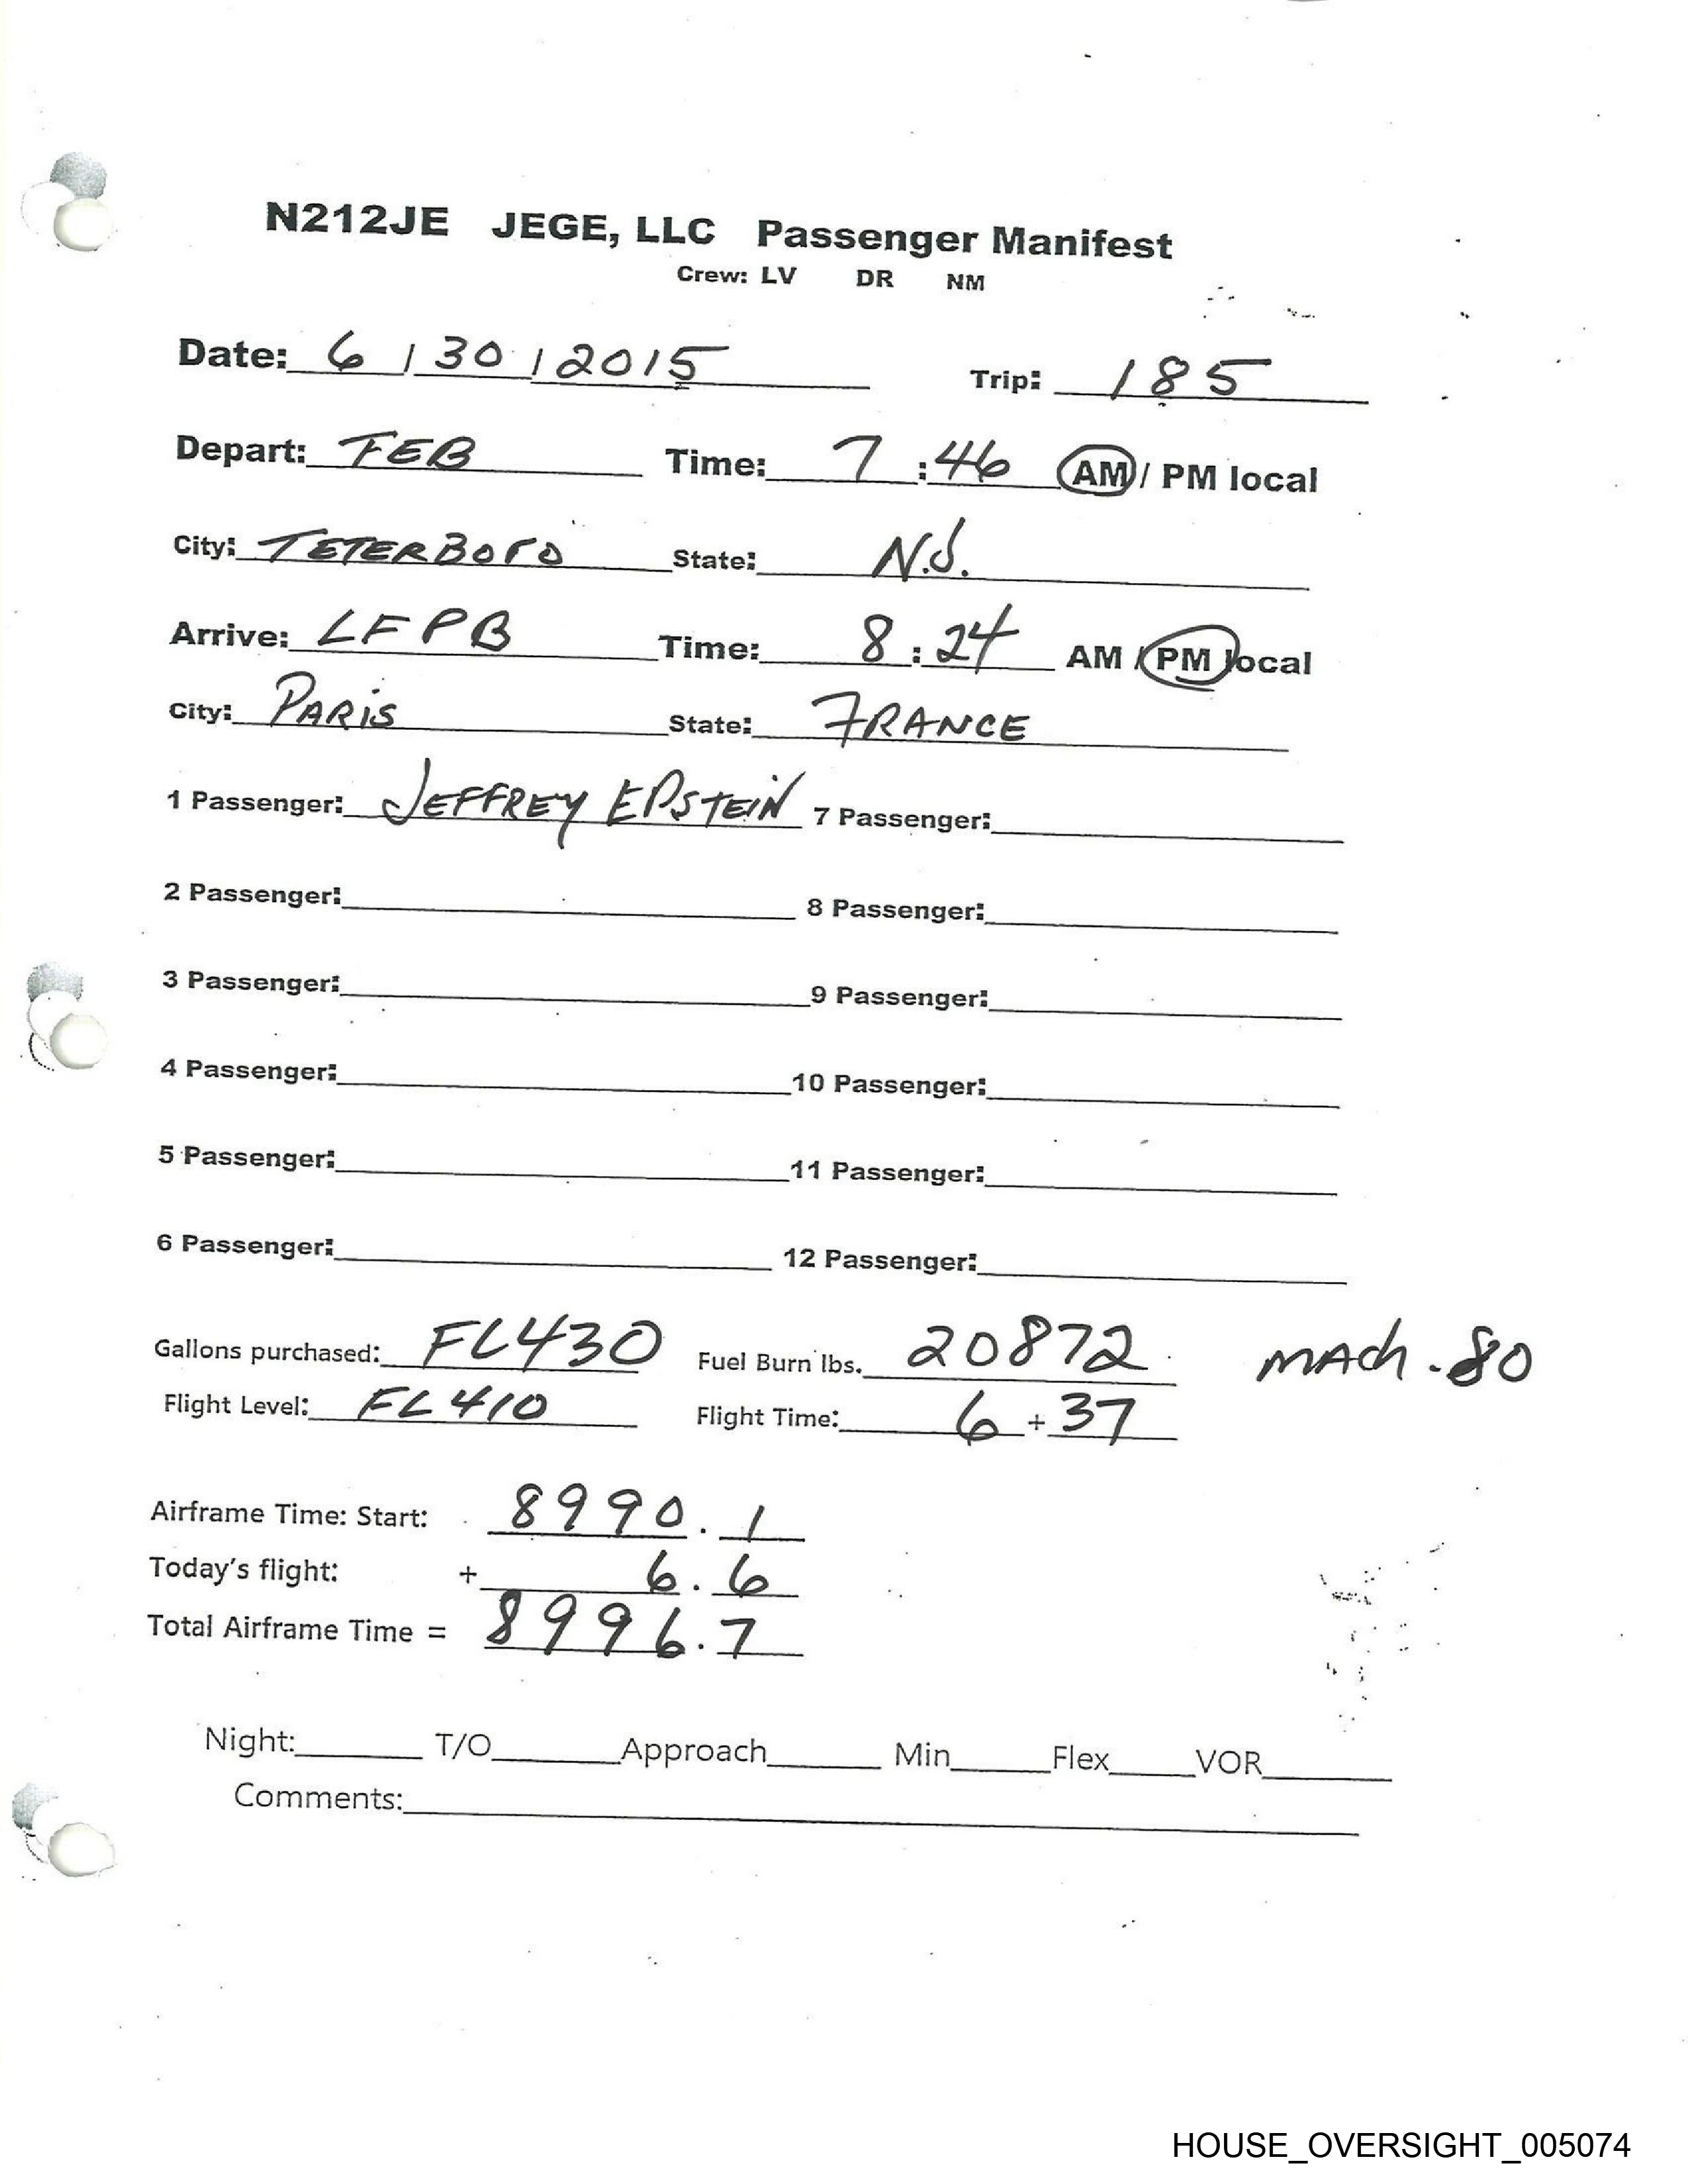 N212JE JEGE, LLC Passenger Manifest
Crew: LV DR NM
Date: 6 / 30 / 2015 Trip: 185
Depart: TEB Time: 7 : 46 AM / PM local
City: TETERBORO State: N.J.
Arrive: LFPB Time: 8 : 24 AM / PM local
City: PARIS State: FRANCE
1 Passenger: JEFFREY EPSTEIN 7 Passenger:
2 Passenger: 8 Passenger:
3 Passenger: 9 Passenger:
4 Passenger: 10 Passenger:
5 Passenger: 11 Passenger:
6 Passenger: 12 Passenger:
Gallons purchased: FL430 Fuel Burn lbs. 20872 MACh .80
Flight Level: FL410 Flight Time: 6 + 37
Airframe Time: Start: 8990.1
Today's flight: + 6.6
Total Airframe Time = 8996.7
Night: T/O Approach Min Flex VOR
Comments:
HOUSE_OVERSIGHT_005074